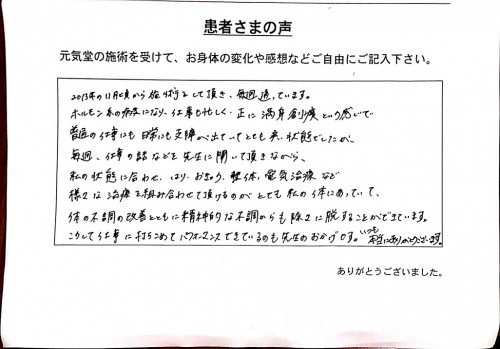 患者さまの声
元気堂の施術を受けて、お身体の変化や感想などご自由にご記入下さい。
2013年の11月頃から施術をして頂き、毎週通っています。
ホルモン系の病気になり、仕事も忙しく、正に満身創痍という感じで
普通の仕事にも日常にも支障が出ていてとても悪い状態でしたが、
毎週、仕事の話などを先生に聞いて頂きながら、
私の状態に合わせ、はり・お灸・整体・電気治療など
様々な治療を組み合わせて頂けるのがとても私の体にあっていて、
体の不調の改善とともに精神的な不調からも徐々に脱することができています。
こうして仕事に打ちこめてパフォーマンスできているのも先生のおかげです。いつも本当にありがとうございます。
ありがとうございました。